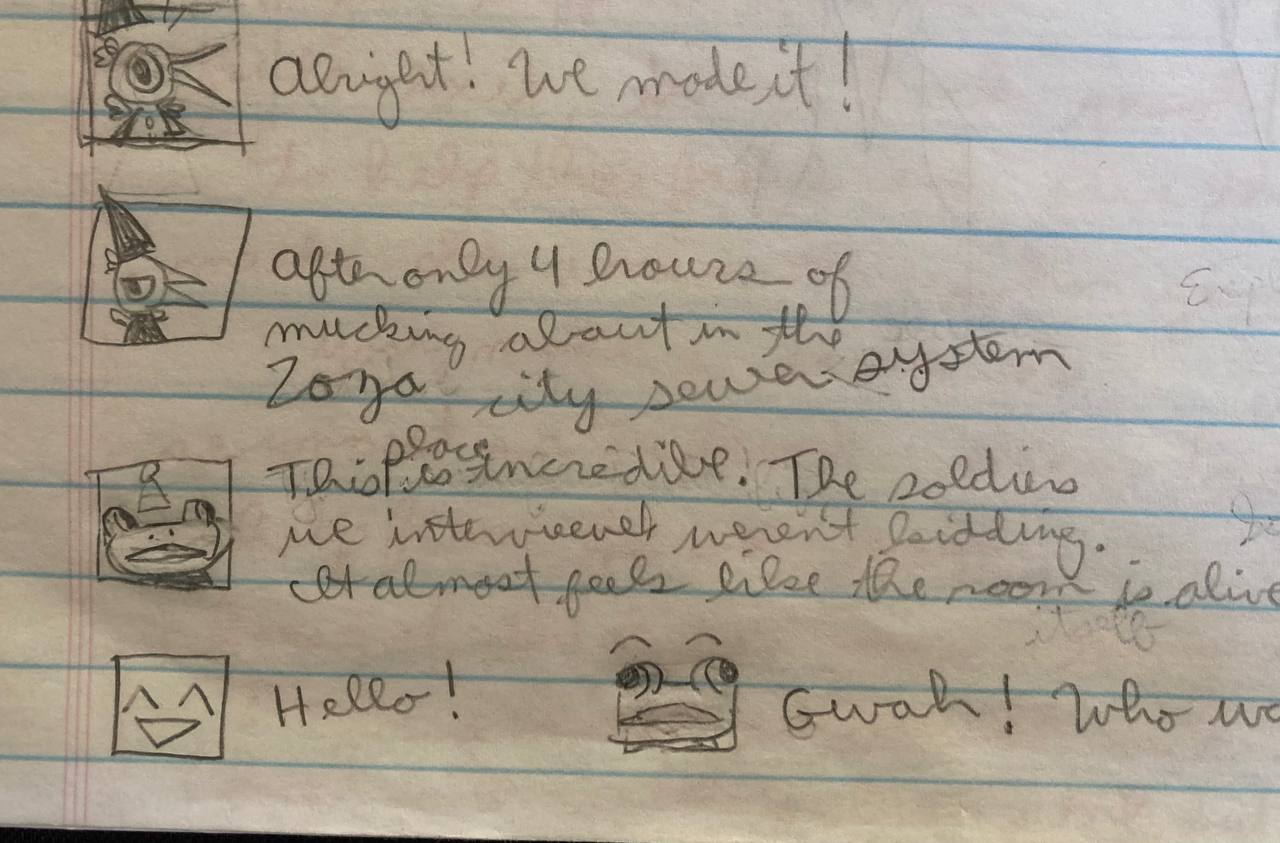 Alright! We made it!
After only 4 hours of
mucking about in the
Zoza city sewer system
This place is incredible. The soldiers
we interviewed weren't kidding.
It almost feels like the room is alive
itself
Hello! Gwah! Who